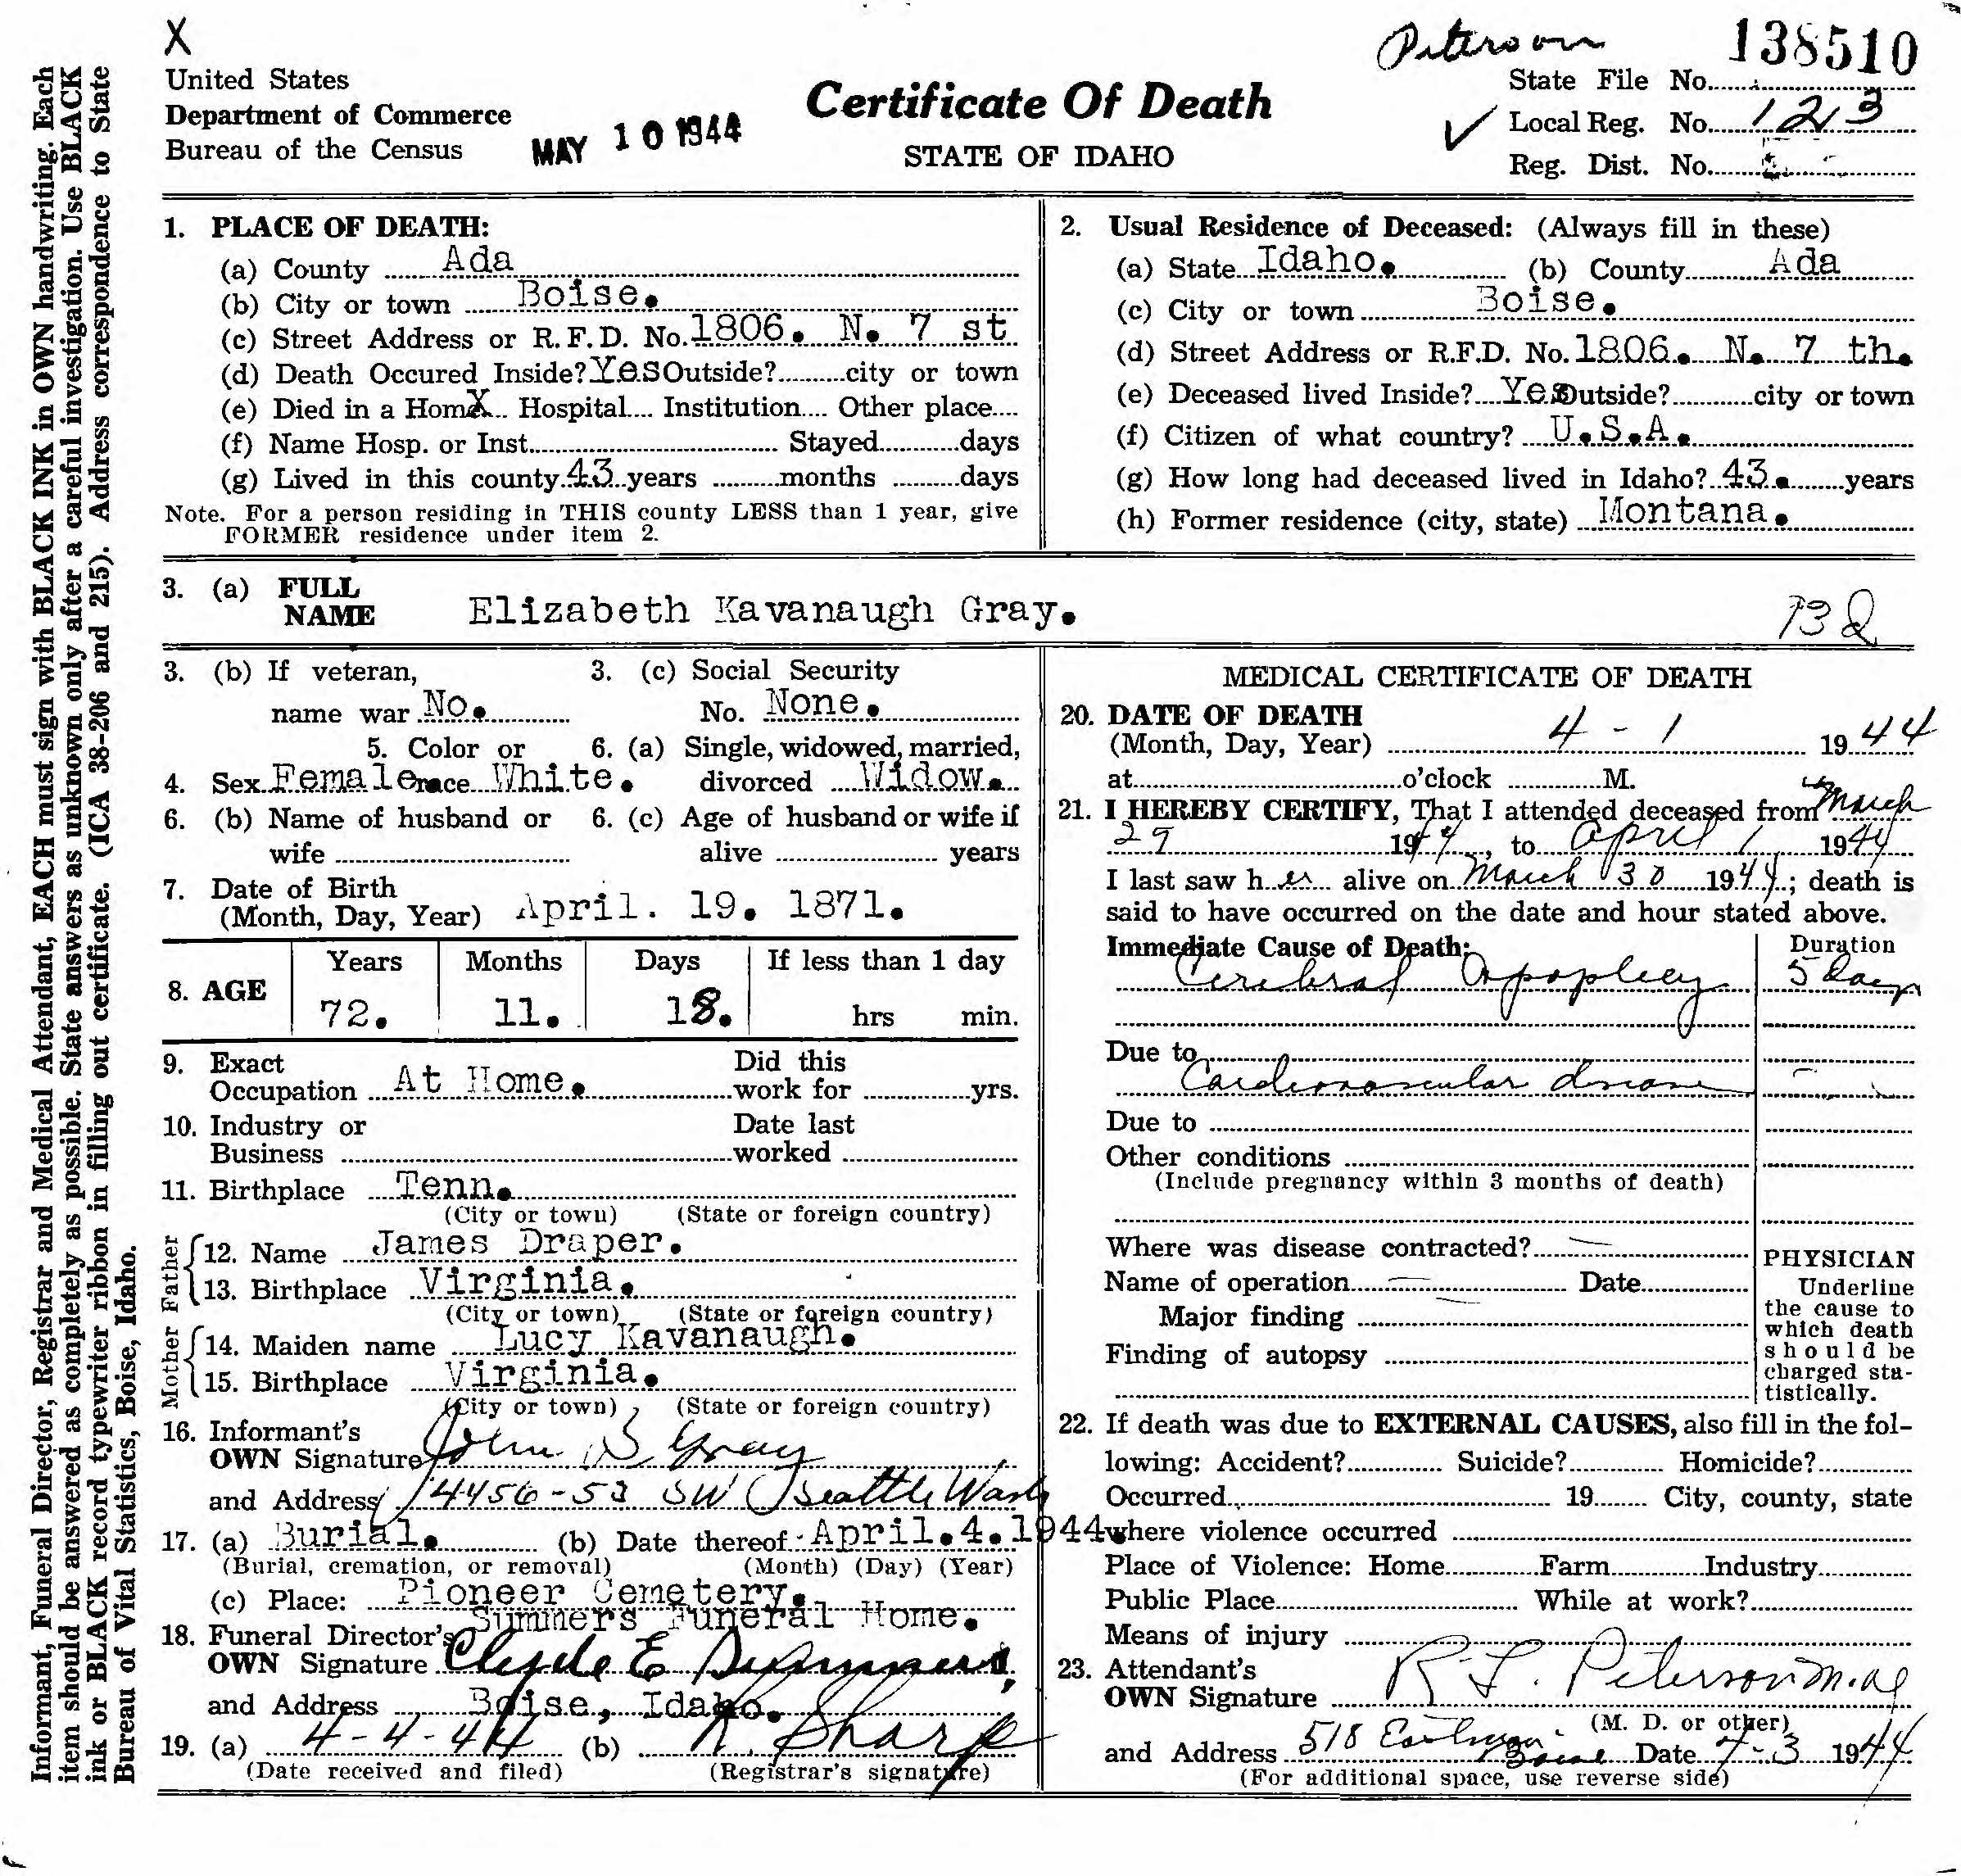 X
Peterson
138510
United States
Department of Commerce
Bureau of the Census
MAY 10 1944
Certificate Of Death
STATE OF IDAHO
State File No.
✓ Local Reg. No. 123
Reg. Dist. No.
1. PLACE OF DEATH:
(a) County Ada
(b) City or town Boise.
(c) Street Address or R.F.D. No. 1806. N. 7 st
(d) Death Occured Inside? Yes Outside? city or town
(e) Died in a Home X Hospital Institution Other place
(f) Name Hosp. or Inst. Stayed days
(g) Lived in this county 43 years months days
Note. For a person residing in THIS county LESS than 1 year, give
FORMER residence under item 2.
2. Usual Residence of Deceased: (Always fill in these)
(a) State Idaho. (b) County Ada
(c) City or town Boise.
(d) Street Address or R.F.D. No. 1806. N. 7 th.
(e) Deceased lived Inside? Yes Outside? city or town
(f) Citizen of what country? U.S.A.
(g) How long had deceased lived in Idaho? 43. years
(h) Former residence (city, state) Montana.
3. (a) FULL
NAME Elizabeth Kavanaugh Gray.
3. (b) If veteran,
name war No.
3. (c) Social Security
No. None.
4. Sex Female
5. Color or
race White.
6. (a) Single, widowed, married,
divorced Widow.
6. (b) Name of husband or
wife
6. (c) Age of husband or wife if
alive years
7. Date of Birth
(Month, Day, Year) April. 19. 1871.
8. AGE
Years Months Days If less than 1 day
72. 11. 18. hrs min.
9. Exact
Occupation At Home.
Did this
work for yrs.
10. Industry or
Business
Date last
worked
11. Birthplace Tenn.
(City or town) (State or foreign country)
Father
12. Name James Draper.
13. Birthplace Virginia.
(City or town) (State or foreign country)
Mother
14. Maiden name Lucy Kavanaugh.
15. Birthplace Virginia.
(City or town) (State or foreign country)
16. Informant's
OWN Signature John S Gray
and Address 4456-53 SW Seattle Wash
17. (a) Burial. (b) Date thereof April. 4. 1944.
(Burial, cremation, or removal) (Month) (Day) (Year)
(c) Place: Pioneer Cemetery.
Summers Funeral Home.
18. Funeral Director's
OWN Signature Clyde E Summers
and Address Boise, Idaho.
19. (a) 4-4-44 (b) Sharp
(Date received and filed) (Registrar's signature)
MEDICAL CERTIFICATE OF DEATH
20. DATE OF DEATH
(Month, Day, Year) 4 - 1 1944
at o'clock M.
21. I HEREBY CERTIFY, That I attended deceased from March
29 1944, to April 1 1944
I last saw her alive on March 30 1944; death is
said to have occurred on the date and hour stated above.
Immediate Cause of Death: Duration
Cerebral Apoplexy 5 days
Due to
Cardiovascular disease
Due to
Other conditions
(Include pregnancy within 3 months of death)
Where was disease contracted?
Name of operation Date
Major finding
Finding of autopsy
PHYSICIAN
Underline
the cause to
which death
should be
charged sta-
tistically.
22. If death was due to EXTERNAL CAUSES, also fill in the fol-
lowing: Accident? Suicide? Homicide?
Occurred 19 City, county, state
where violence occurred
Place of Violence: Home Farm Industry
Public Place While at work?
Means of injury
23. Attendant's
OWN Signature R L Peterson M.D.
(M. D. or other)
and Address 518 Boise Date -3 1944
(For additional space, use reverse side)
Informant, Funeral Director, Registrar and Medical Attendant, EACH must sign with BLACK INK in OWN handwriting. Each
item should be answered as completely as possible. State answers as unknown only after a careful investigation. Use BLACK
ink or BLACK record typewriter ribbon in filling out certificate. (ICA 38-206 and 215). Address correspondence to State
Bureau of Vital Statistics, Boise, Idaho.